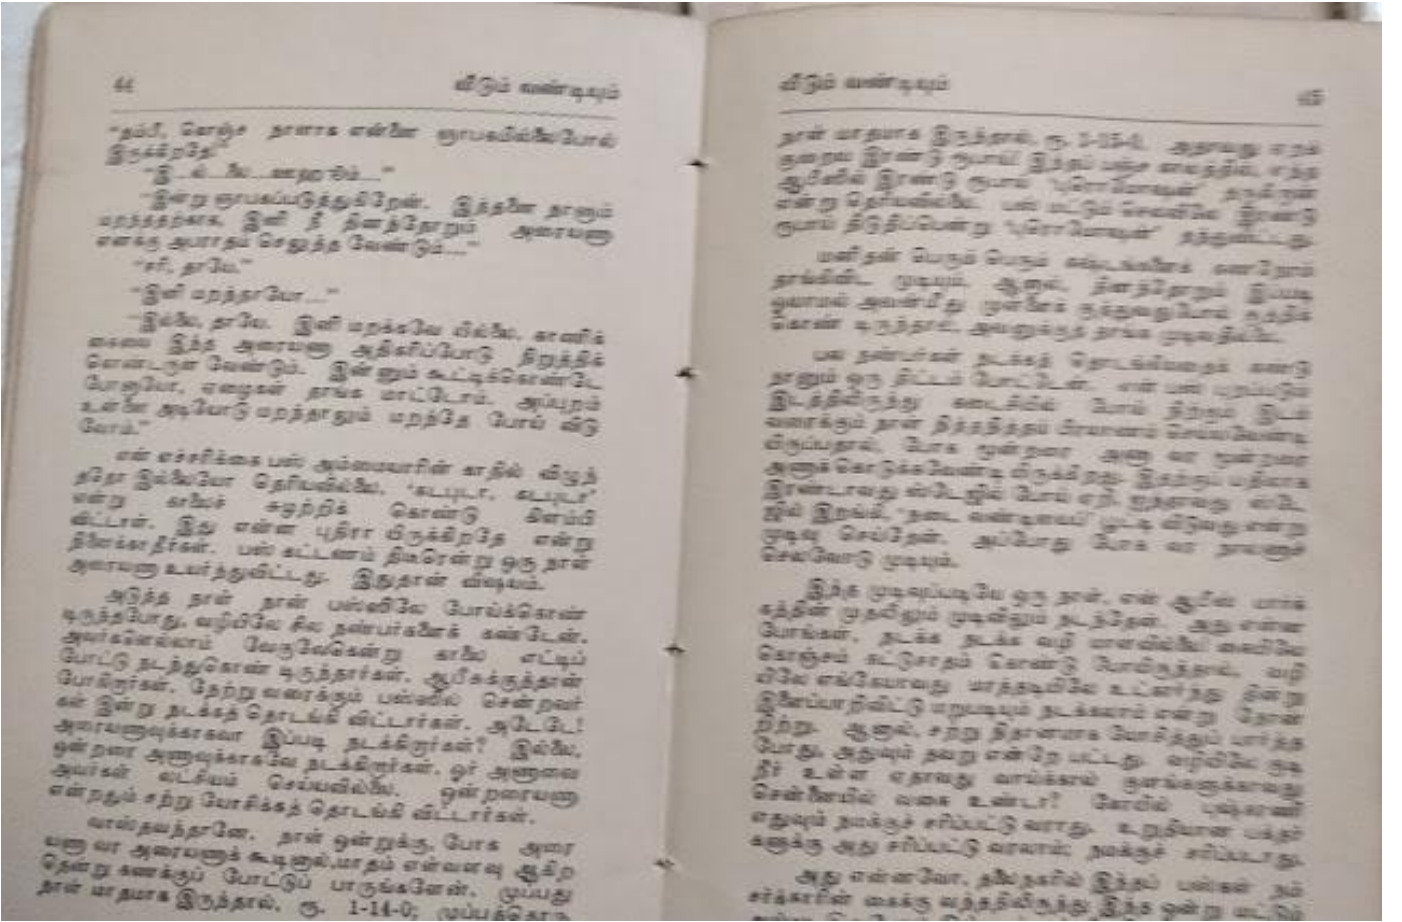 44
வீடும் வண்டியும்
"தம்பீ, கொஞ்ச நாளாக என்னை ஞாபகமில்லைபோல்
இருக்கிறதே!"
"இ...ல்...லை...ஊஹூம்..."
"இன்று ஞாபகப்படுத்துகிறேன். இத்தனை நாளும்
மறந்ததற்காக, இனி நீ தினந்தோறும் அரையணா
எனக்கு அபராதம் செலுத்த வேண்டும்..."
"சரி, தாயே."
"இனி மறந்தாயோ..."
"இல்லை, தாயே. இனி மறக்கவே யில்லை, காணிக்
கையை இந்த அரையணா அதிகரிப்போடு நிறுத்திக்
கொண்டருள வேண்டும். இன்னும் கூட்டிக்கொண்டே
போனாயோ, ஏழைகள் தாங்க மாட்டோம். அப்புறம்
உன்னை அடியோடு மறந்தாலும் மறந்தே போய் விடு
வோம்."
என் எச்சரிக்கை பஸ் அம்மையாரின் காதில் விழுந்
ததோ இல்லையோ தெரியவில்லை, 'கடபுடா, கடபுடா'
என்று காலைச் சுழற்றிக் கொண்டு கிளம்பி
விட்டாள். இது என்ன புதிரா யிருக்கிறதே என்று
நினைக்காதீர்கள். பஸ் கட்டணம் திடீரென்று ஒரு நாள்
அரையணா உயர்ந்துவிட்டது. இதுதான் விஷயம்.
அடுத்த நாள் நான் பஸ்ஸிலே போய்க்கொண்
டிருந்தபோது, வழியிலே சில நண்பர்களைக் கண்டேன்.
அவர்களெல்லாம் வேகுவேகென்று காலை எட்டிப்
போட்டு நடந்துகொண் டிருந்தார்கள். ஆபீசுக்குத்தான்
போகிறார்கள். நேற்று வரைக்கும் பஸ்ஸில் சென்றவர்
கள் இன்று நடக்கத் தொடங்கி விட்டார்கள். அடேடே!
அரையணாவுக்காகவா இப்படி நடக்கிறார்கள்? இல்லை,
ஒன்றரை அணாவுக்காகவே நடக்கிறார்கள். ஓர் அணாவை
அவர்கள் லட்சியம் செய்யவில்லை. ஒன்றரையணா
என்றதும் சற்று யோசிக்கத் தொடங்கி விட்டார்கள்.
வாஸ்தவந்தானே. நாள் ஒன்றுக்கு, போக அரை
யணா வர அரையணாக் கூடினால், மாதம் எவ்வளவு ஆகிற
தென்று கணக்குப் போட்டுப் பாருங்களேன். முப்பது
நாள் மாதமாக இருந்தால், ரூ. 1-14-0; முப்பத்தொரு
வீடும் வண்டியும்
45
நாள் மாதமாக இருந்தால், ரூ. 1-15-0. அதாவது ஏறக்
குறைய இரண்டு ரூபாய்! இந்தப் பஞ்ச காலத்தில், எந்த
ஆபீஸில் இரண்டு ரூபாய் 'புரொமோஷன்' தருகிறான்
என்று தெரியவில்லை. பஸ் மட்டும் செலவிலே இரண்டு
ரூபாய் திடுதிப்பென்று 'புரொமோஷன்' தந்துவிட்டது.
மனிதன் பெரும் பெரும் கஷ்டங்களைக் கூட
தாங்கிவிட முடியும். ஆனால், தினந்தோறும் இப்படி
ஓயாமல் அவன்மீது முள்ளைக் குத்துவதுபோல் குத்திக்
கொண் டிருந்தால், அவனுக்குத் தாங்க முடிவதில்லை.
பல நண்பர்கள் நடக்கத் தொடங்கியதைக் கண்டு
நானும் ஒரு திட்டம் போட்டேன். என் பஸ் புறப்படும்
இடத்திலிருந்து கடைசியில் போய் நிற்கும் இடம்
வரைக்கும் நான் நித்தநித்தம் பிரயாணம் செய்யவேண்டி
யிருப்பதால், போக மூன்றரை அணா வர மூன்றரை
அணாக் கொடுக்கவேண்டி யிருக்கிறது. இதற்குப் பதிலாக
இரண்டாவது ஸ்டேஜில் போய் ஏறி, ஐந்தாவது ஸ்டே
ஜில் இறங்கி, 'நடை வண்டியைப்' பூட்டி விடுவது என்று
முடிவு செய்தேன். அப்போது போக வர நாலணாச்
செலவோடு முடியும்.
இந்த முடிவுப்படியே ஒரு நாள், என் ஆபீஸ் மார்க்
கத்தின் முதலிலும் முடிவிலும் நடந்தேன். அது என்ன
போங்கள், நடக்க நடக்க வழி மாளவில்லை! கையிலே
கொஞ்சம் கட்டுசாதம் கொண்டு போயிருந்தால், வழி
யிலே எங்கேயாவது மரத்தடியிலே உட்கார்ந்து தின்று
இளைப்பாறிவிட்டு மறுபடியும் நடக்கலாம் என்று தோன்
றிற்று. ஆனால், சற்று நிதானமாக யோசித்துப் பார்த்த
போது, அதுவும் தவறு என்றே பட்டது. வழியிலே குடி
நீர் உள்ள ஏதாவது வாய்க்கால் குளங்களுக்காவது
சென்னையில் வகை உண்டா? கோயில் புஷ்கரணி
எதுவும் நமக்குச் சரிப்பட்டு வராது. உறுதியான பக்தர்
களுக்கு அது சரிப்பட்டு வரலாம்; நமக்குச் சரிப்படாது.
அது என்னவோ, தலைநகரில் இந்தப் பஸ்கள் நம்
சர்க்காரின் கைக்கு வந்ததிலிருந்து இந்த ஒன்று மட்டும்